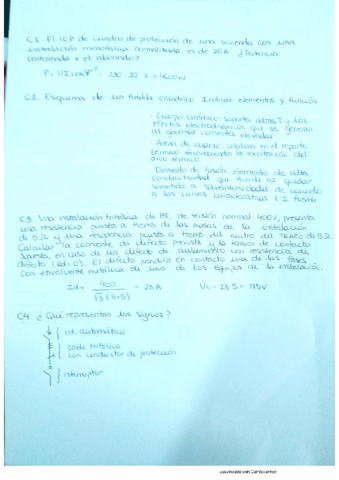 C1. El ICP de cuadro de protección de una vivienda con una
instalación monofásica normalizada es de 20A ¿Potencia
contratada x el abonado?
P = UI cosφ = 230 · 20 · 1 = 4600W
C2. Esquema de un fusible cilíndrico. Indicar elementos y función
· Cuerpo cerámico: soporta altas T y los
efectos electrodinámicos que se generan
al gobernar corrientes elevadas
· Arena de cuarzo: colabora en el reparto
térmico favoreciendo la extinción del
arco térmico
· Elemento de fusión elemento de alta
conductividad que funde al quedar
sometido a sobreintensidades de acuerdo
a las curvas características t I fusible
C3. Una instalación trifásica de BT, de tensión nominal 400V, presenta
una resistencia puesta a tierra de las masas de la instalación
de 5Ω y una resistencia puesta a tierra del neutro del TRAFO de 5Ω.
Calcular la corriente de defecto prevista y la tensión de contacto
supuesta, en caso de un defecto de aislamiento con resistencia de
defecto (Rd=0). El defecto pondría en contacto una de las fases
con envolvente metálica de uno de los equipos de la instalación.
Id = 400 / √3 (5+5) = 23A Uc = 23 · 5 = 115V
C4. ¿Qué representan los signos?
int. automático
cable trifásico
con conductor de protección
interruptor